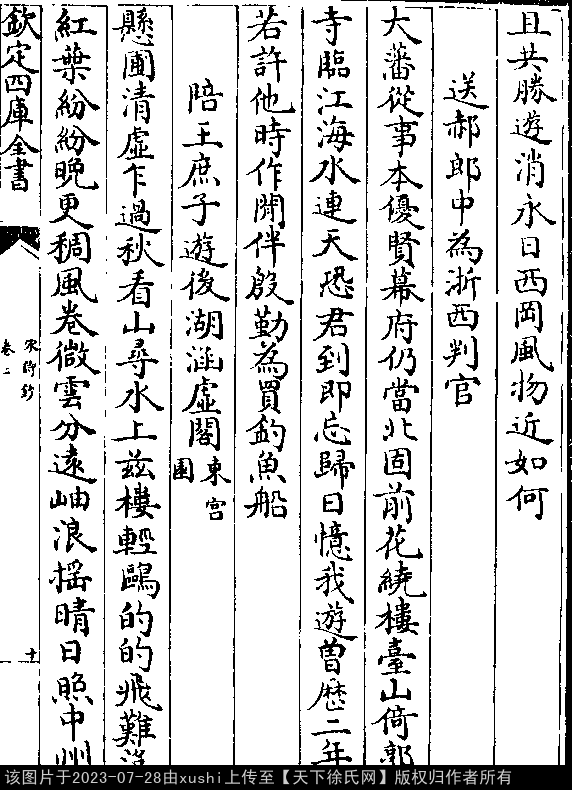 且共勝遊消永日西岡風物近如何
送郝郎中為浙西判官
大藩從事本優賢幕府仍當北固前花繞樓臺山倚郭
寺臨江海水連天恐君到即忘歸日憶我遊曽歴二年
若許他時作閒伴殷勤為買釣魚船
陪王庶子遊後湖涵虛閣東宫園
懸圃清虛乍過秋看山尋水上兹樓輕鷗的的飛難
紅葉紛紛晚更稠風卷微雲分遠岫浪摇晴日照中州
欽定四庫全書
宋詩鈔
卷二
十
该图片于2023-07-28由xushi上传至【天下徐氏网】版权归作者所有